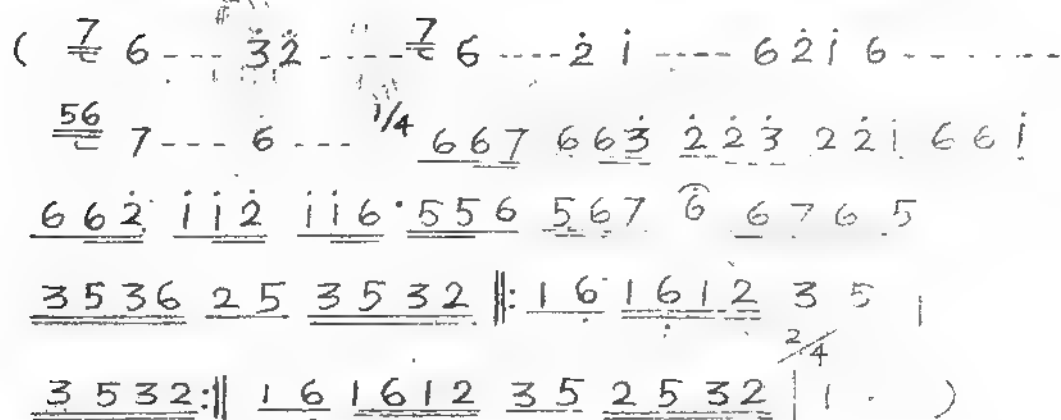 ( 7 6 ---- 3̇ 2̇ ----- 7 6 ---- 2̇ i ---- 6 2̇ i 6 --------
56 7 --- 6 --- 1/4 667 663̇ 2̇2̇3̇ 22̇i 66i
662̇ ii2̇ ii6 · 556 567 6 6765
3536 25 3532 ‖: 16 1612 35 |
3532 :‖ 16 1612 35 2532 | 2/4 1 · )